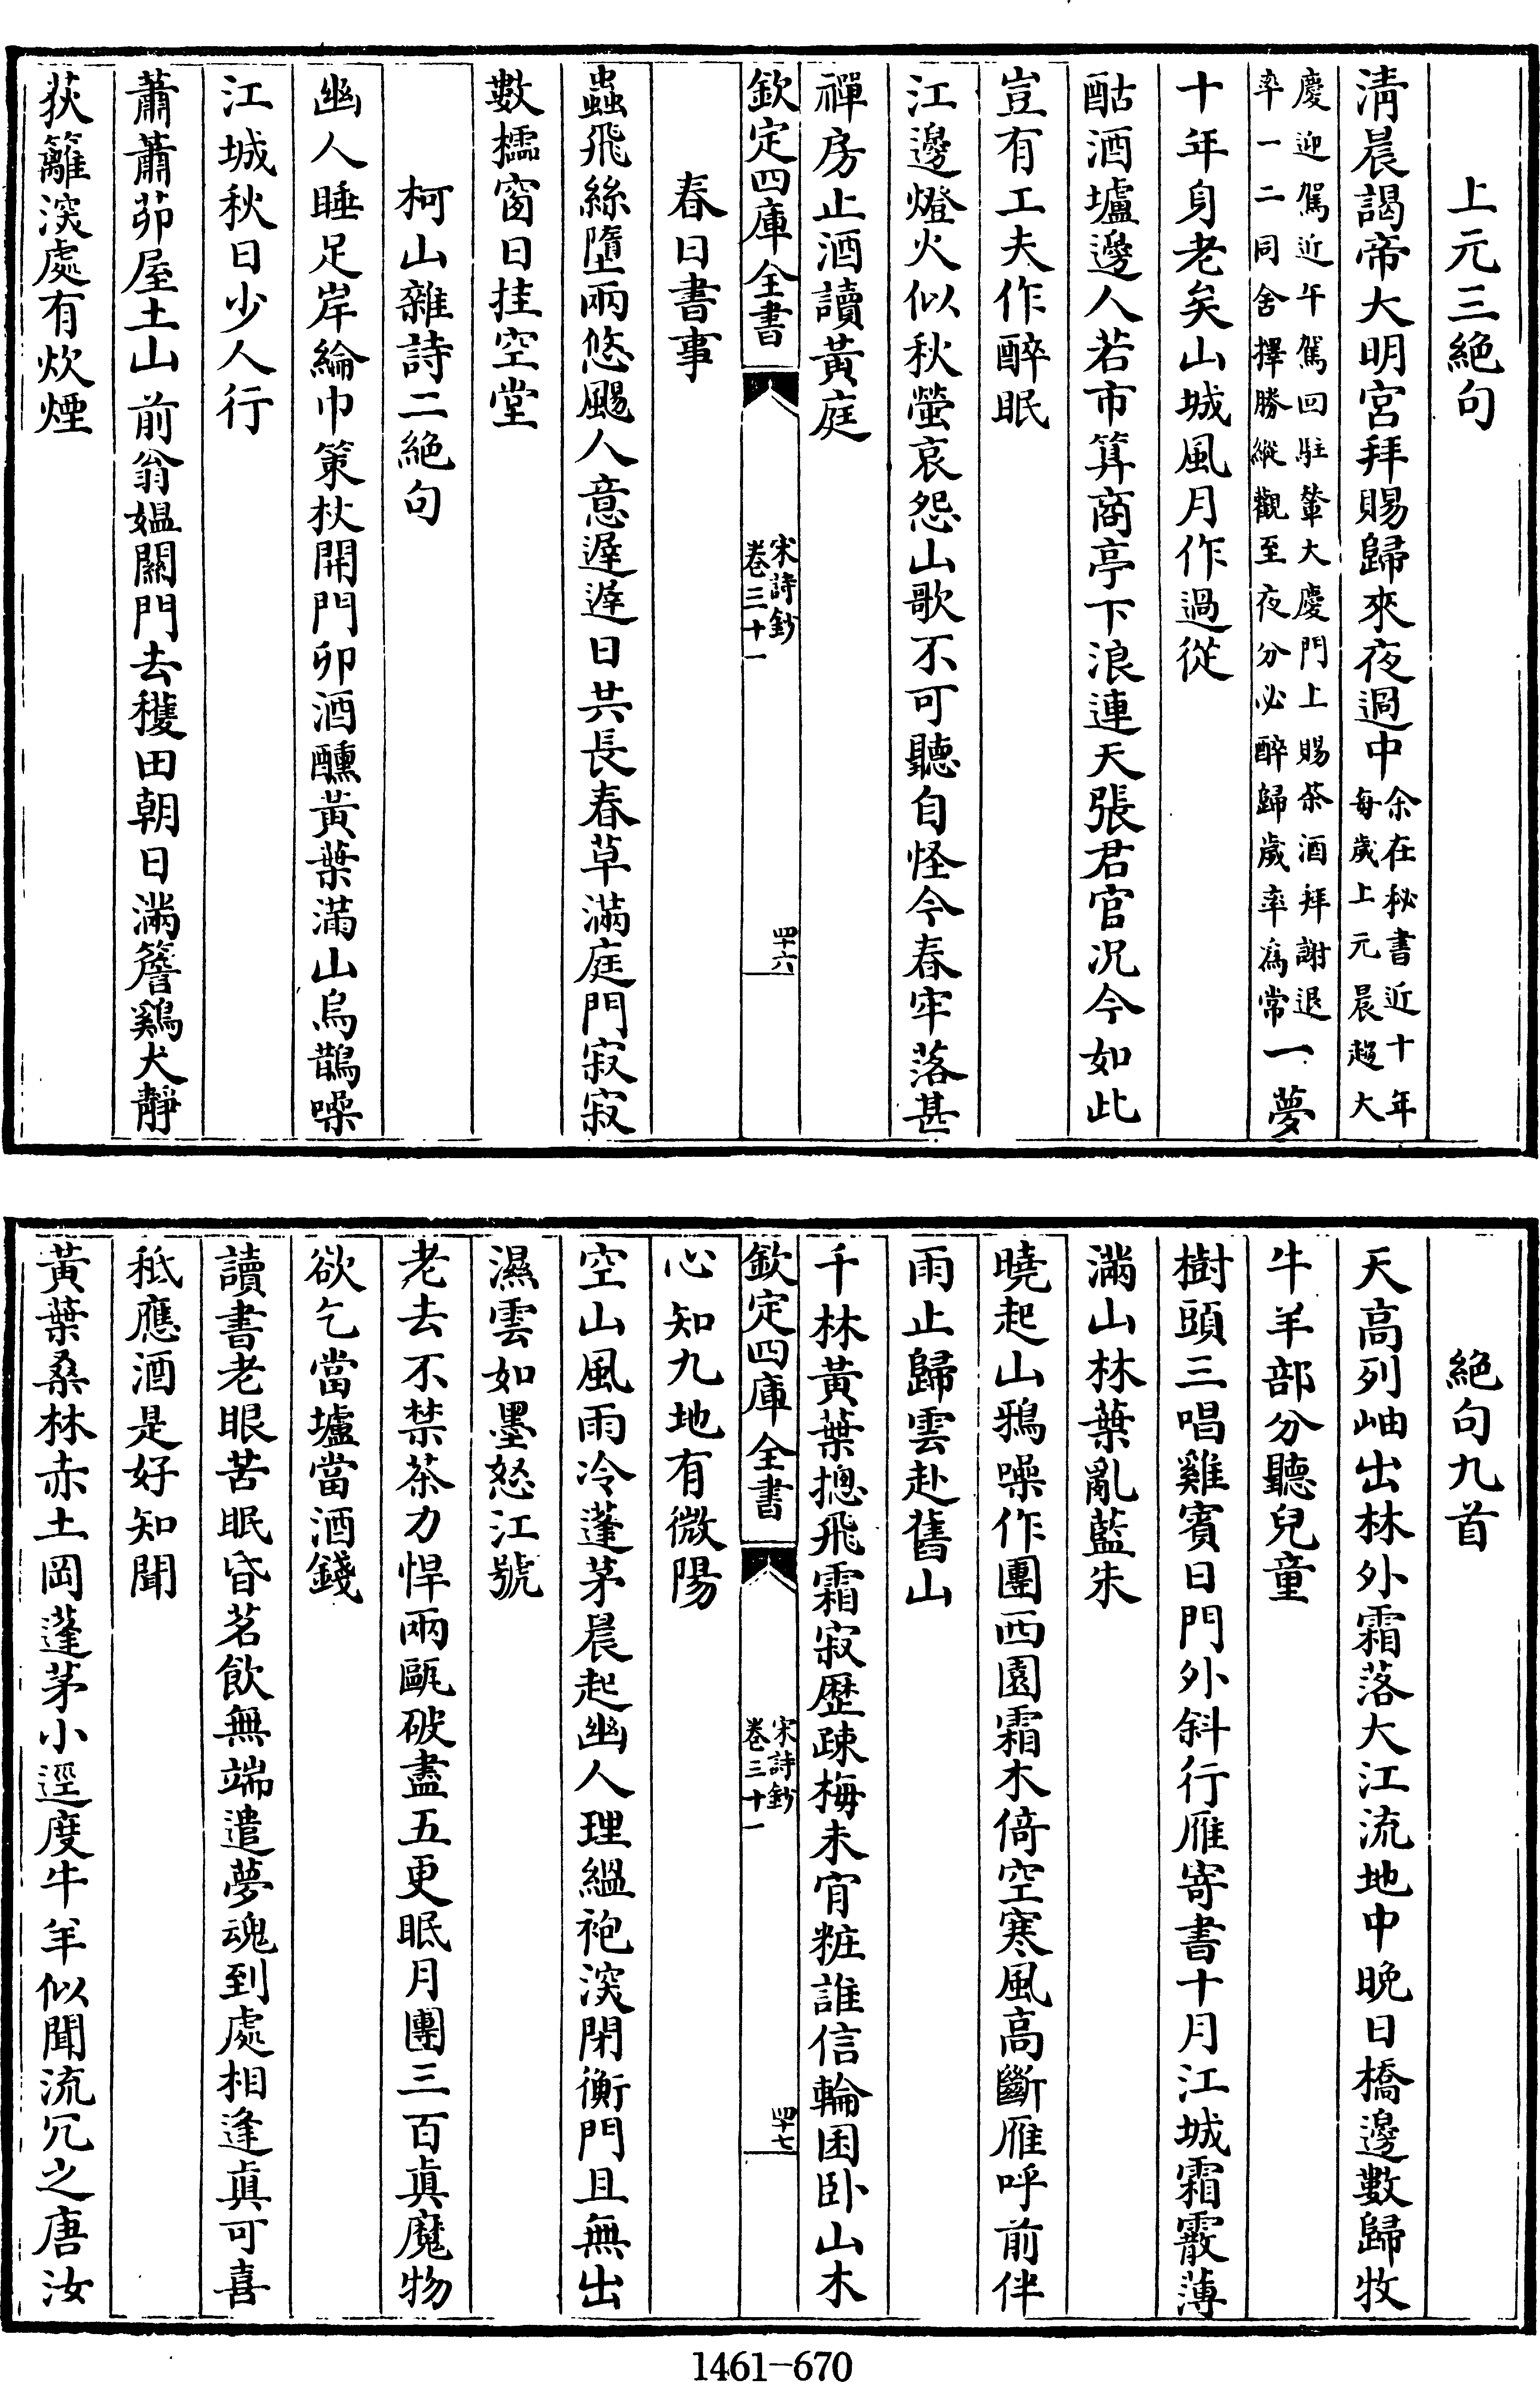 上元三絶句
清晨謁帝大明宮拜賜歸來夜過中余在秘書近十年每歲上元晨趨大
慶迎駕近午駕回駐輦大慶門上賜茶酒拜謝退率一二同舍擇勝縱觀至夜分必醉歸歲率為常一夢
十年身老矣山城風月作過從
酤酒壚邊人若市算商亭下浪連天張君官况今如此
豈有工夫作醉眠
江邊燈火似秋螢哀怨山歌不可聽自怪今春牢落甚
禪房止酒讀黃庭
欽定四庫全書
宋詩鈔
卷三十一
四十六
春日書事
蟲飛絲墮兩悠颺人意遲遲日共長春草滿庭門寂寂
數櫺窗日挂空堂
柯山雜詩二絶句
幽人睡足岸綸巾策杖開門卯酒醺黃葉滿山烏鵲噪
江城秋日少人行
蕭蕭茆屋土山前翁媪關門去穫田朝日滿簷鷄犬靜
荻籬深處有炊煙
絶句九首
天高列岫出林外霜落大江流地中晚日橋邊數歸牧
牛羊部分聽兒童
樹頭三唱雞賓日門外斜行雁寄書十月江城霜霰薄
滿山林葉亂藍朱
曉起山鴉噪作團西園霜木倚空寒風高斷雁呼前伴
雨止歸雲赴舊山
千林黃葉摠飛霜寂歷疎梅未肎粧誰信輪囷卧山木
欽定四庫全書
宋詩鈔
卷三十一
四十七
心知九地有微陽
空山風雨冷蓬茅晨起幽人理緼袍深閉衡門且無出
濕雲如墨怒江號
老去不禁茶力悍兩甌破盡五更眠月團三百眞魔物
欲乞當壚當酒錢
讀書老眼苦眠昏茗飲無端遣夢魂到處相逢眞可喜
秪應酒是好知聞
黃葉桑林赤土岡蓬茅小逕度牛羊似聞流冗之唐汝
1461-670